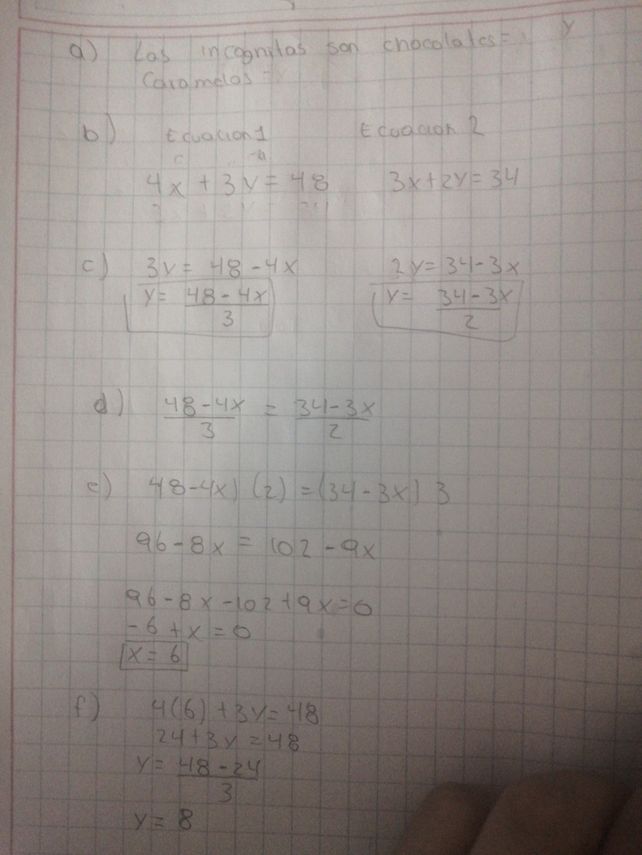 a) Las incognitas son chocolates = y
Caramelos =
b) Ecuacion 1 Ecuacion 2
4x + 3y = 48 3x+2y=34
c) 3y = 48 - 4x 2y = 34 - 3x
y = 48 - 4x / 3 y = 34 - 3x / 2
d) 48 - 4x / 3 = 34 - 3x / 2
e) 48 - 4x) (2) = (34 - 3x) 3
96 - 8x = 102 - 9x
96 - 8x - 102 + 9x = 0
-6 + x = 0
x = 6
f) 4(6) + 3y = 48
24 + 3y = 48
y = 48 - 24 / 3
y = 8